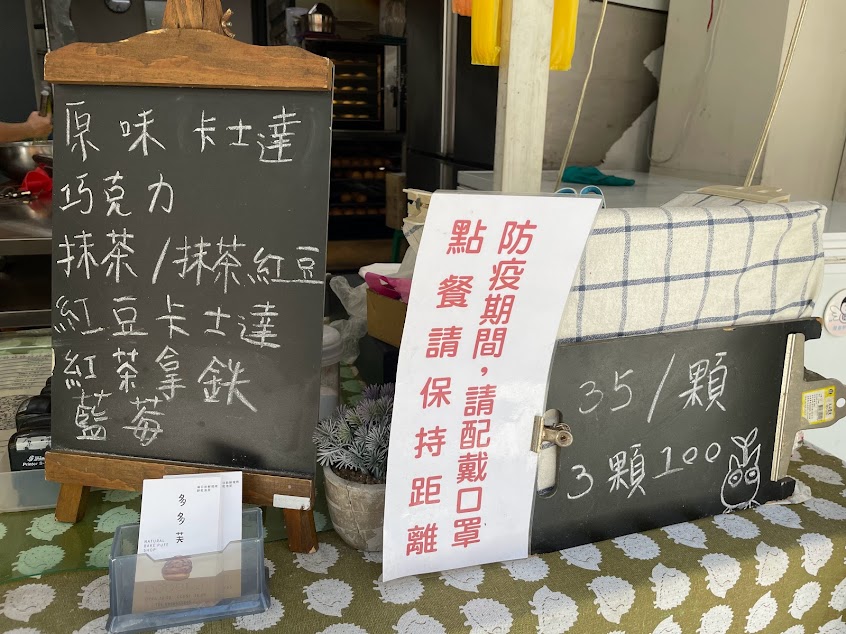 原味卡士達
巧克力
抹茶/抹茶紅豆
紅豆卡士達
紅茶拿鉄
藍莓
防疫期間，請配戴口罩
點餐請保持距離
35/顆
3顆100
多多芙
NATURAL
BAKE PUFF
SHOP